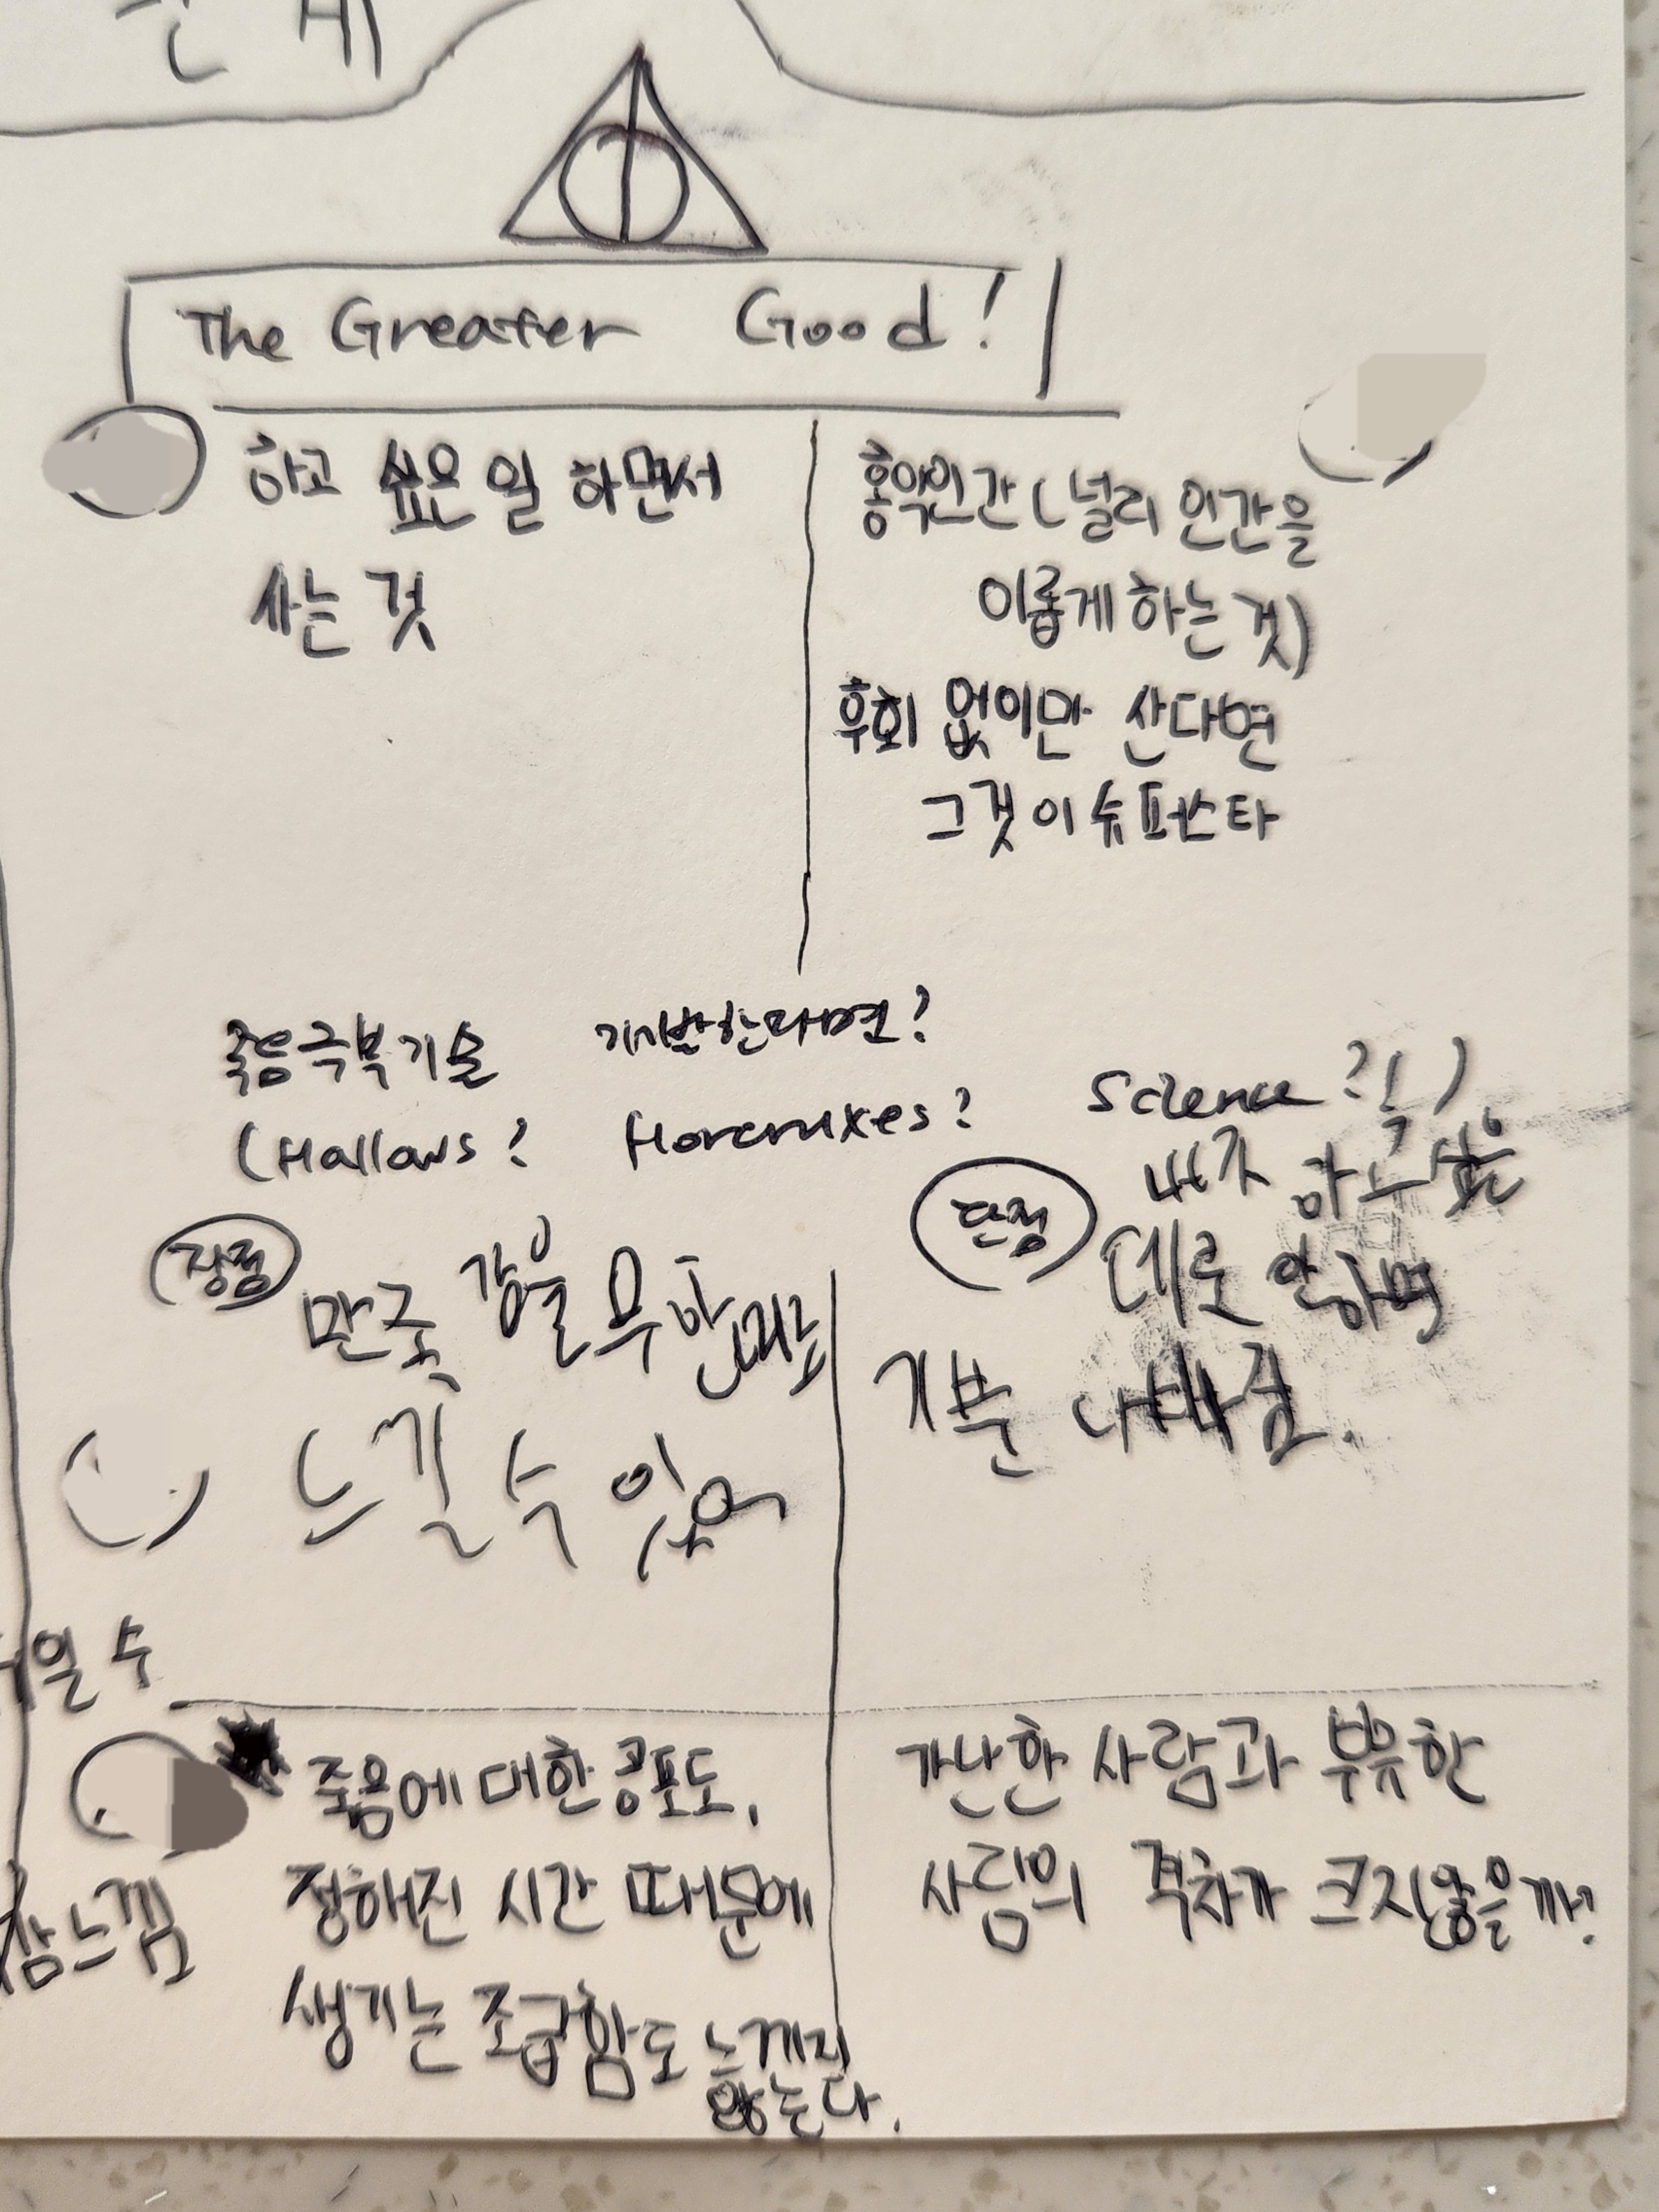 The Greater Good!
하고 싶은 일 하면서
사는 것
홍익인간 (널리 인간을
이롭게 하는 것)
후회 없이만 산다면
그것이 슈퍼스타
죽음극복기술 개발한다면?
(Hallows? Horcruxes? Science?!)
장점
만족감을 무한대로
느낄 수 있어
단점
내가 하고 싶은
대로 안하면
기분 나빠짐.
일 수
죽음에 대한 공포도,
정해진 시간 때문에
생기는 조급함도 느끼지
않는다.
가난한 사람과 부유한
사람의 격차가 크지않을까?
참느낌